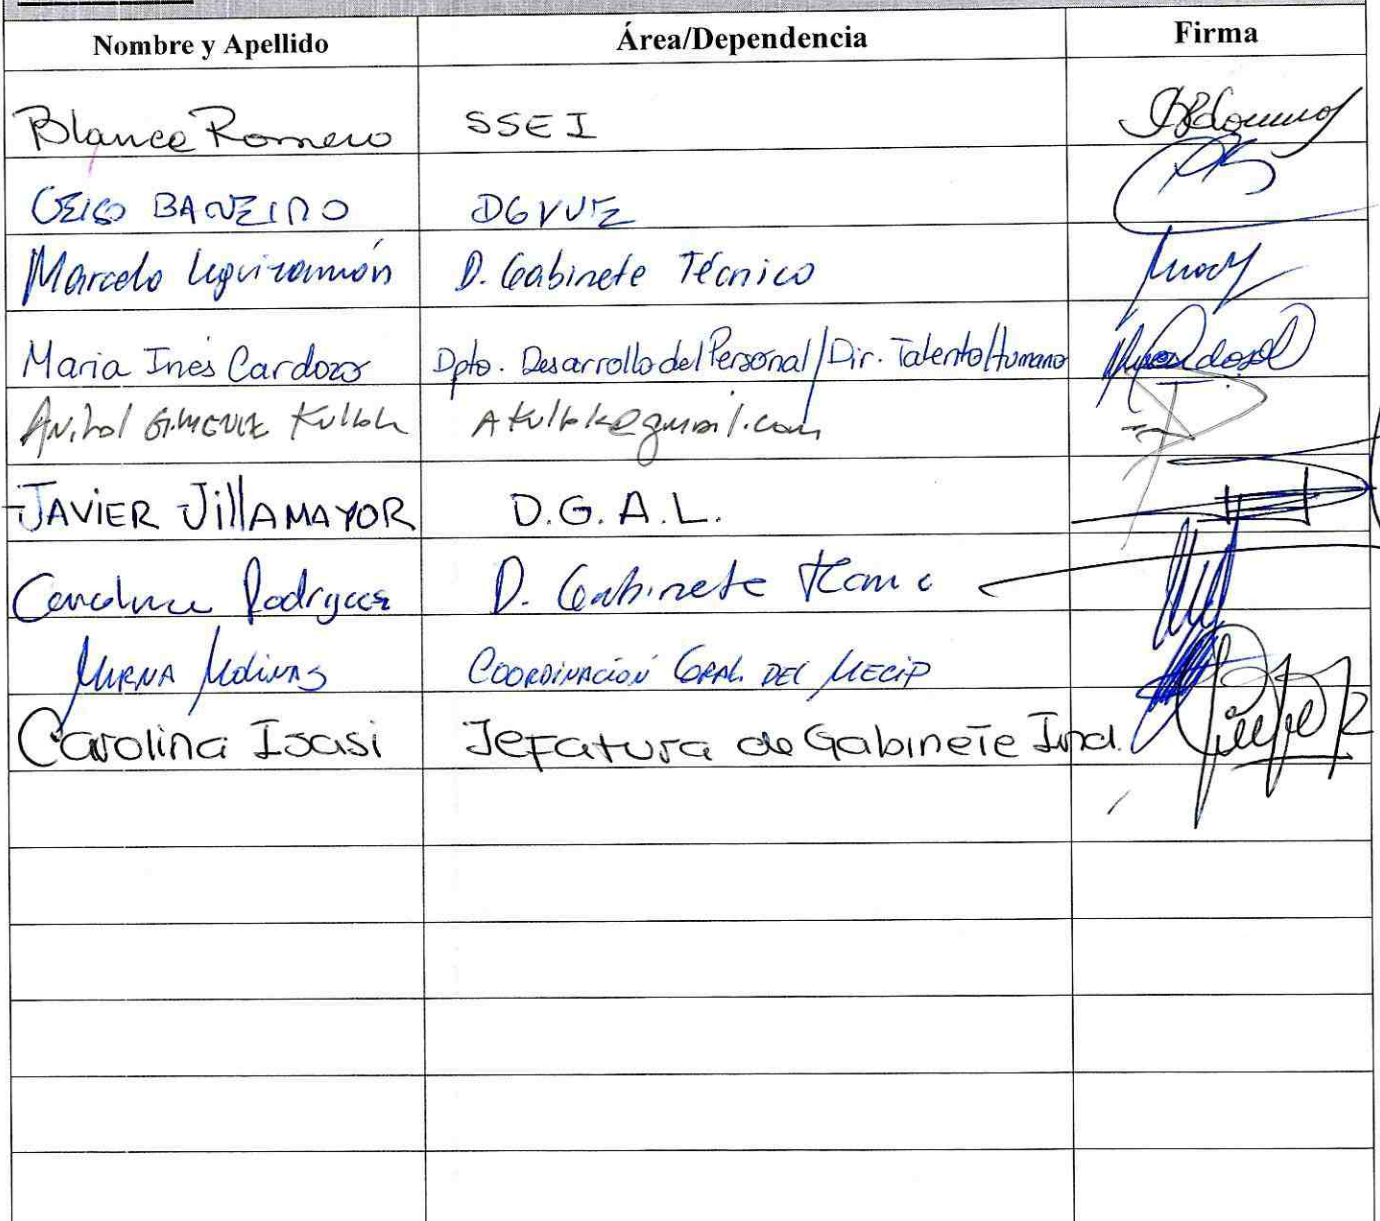 Nombre y Apellido Área/Dependencia Firma
Blanca Romero SSEI
Celso BAREIRO DGVUE
Marcelo Leguizamón D. Gabinete Técnico
Maria Inés Cardozo Dpto. Desarrollo del Personal/Dir. Talento Humano
Anibal GIMENEZ Kullak
JAVIER VillAMAYOR D.G.A.L.
Rodriguez D. Gabinete
MIRNA Molinas COORDINACIÓN GRAL. DEL MECIP
Carolina Isasi Jefatura de Gabinete Ind.